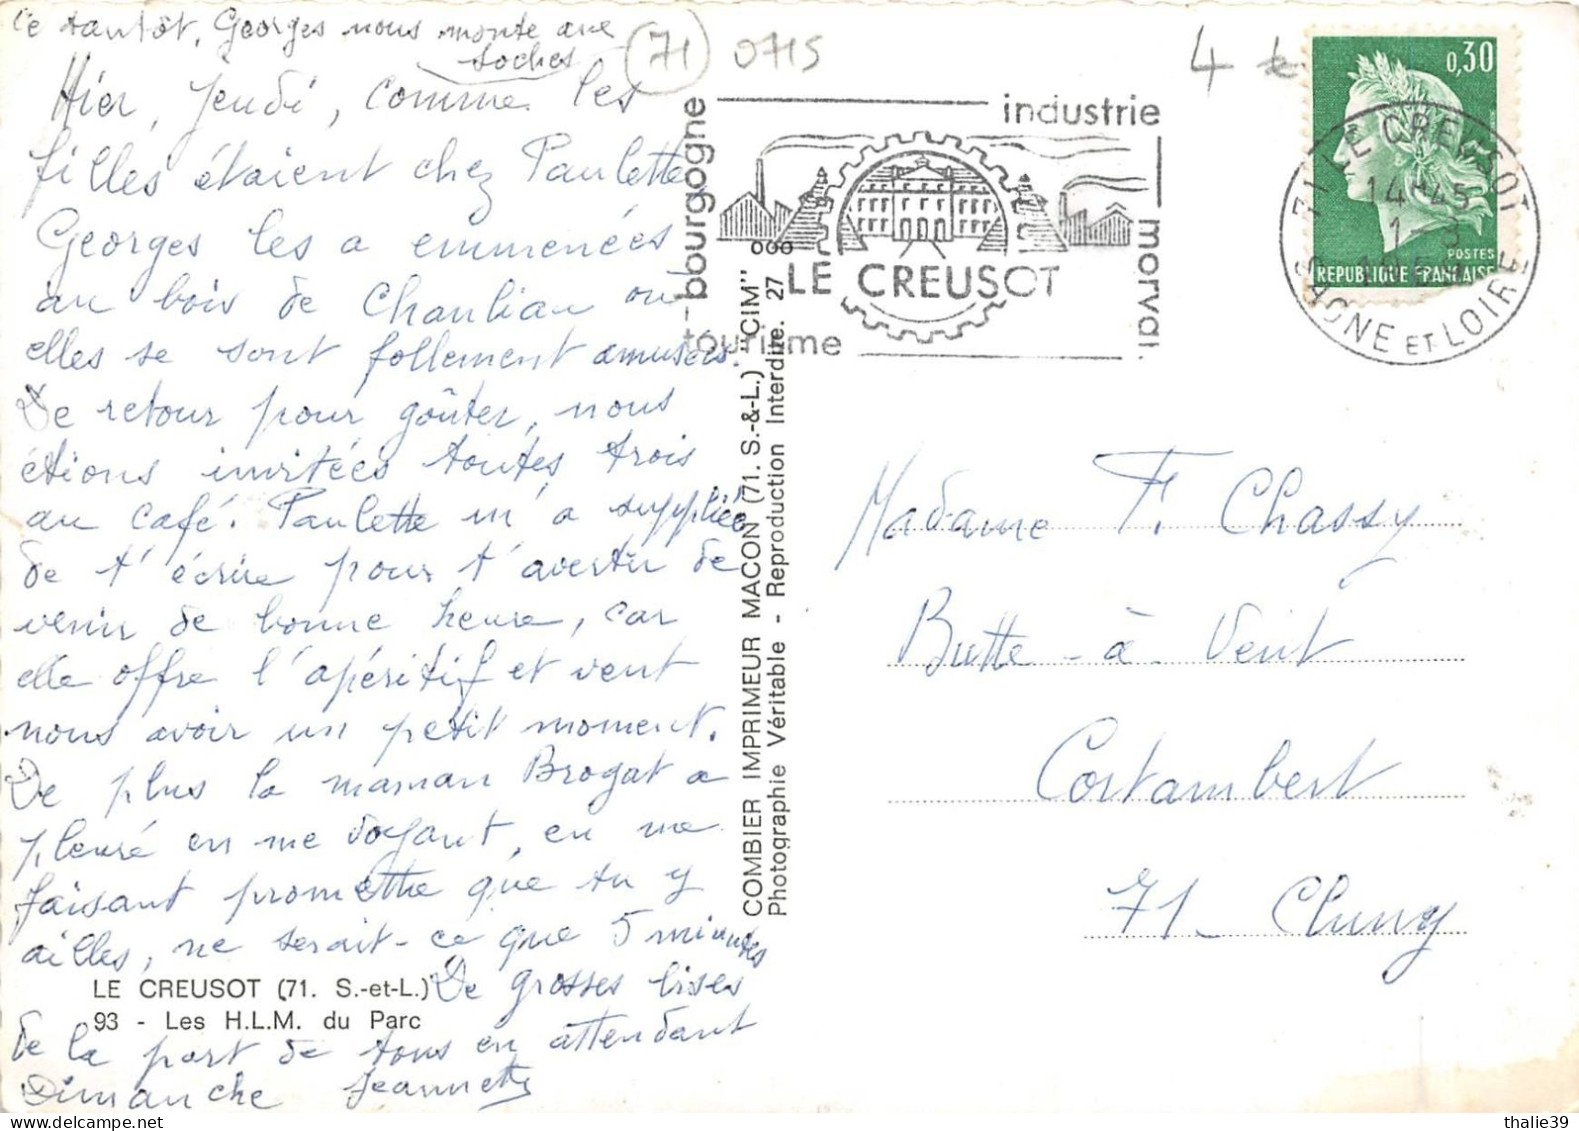 Ce tantôt, Georges nous monte aux
soches
71
0715
4
Hier, Jeudi, comme les
filles étaient chez Paulette
Georges les a emmenées
au bois de Chanliau où
elles se sont follement amusées.
De retour pour goûter, nous
étions invitées toutes trois
au café. Paulette m'a suppliée
de t'écrire pour t'avertir de
venir de bonne heure, car
elle offre l'apéritif et veut
nous avoir un petit moment.
De plus la maman Brogat a
pleuré en me voyant, en me
faisant promettre que tu y
ailles, ne serait-ce que 5 minutes
De grosses bises
de la part de tous en attendant
Dimanche Jeannette
LE CREUSOT (71. S.-et-L.)
93 - Les H.L.M. du Parc
COMBIER IMPRIMEUR MACON (71. S.-&-L.) "CIM"
Photographie Véritable - Reproduction Interdite. 27
bourgogne
industrie
morvan
tourisme
LE CREUSOT
0,30
POSTES
REPUBLIQUE FRANÇAISE
71 LE CREUSOT
14-45
1-3
SAONE ET LOIRE
Madame F. Chassy
Butte-à-Vent
Cortambert
71- Cluny
thalie39